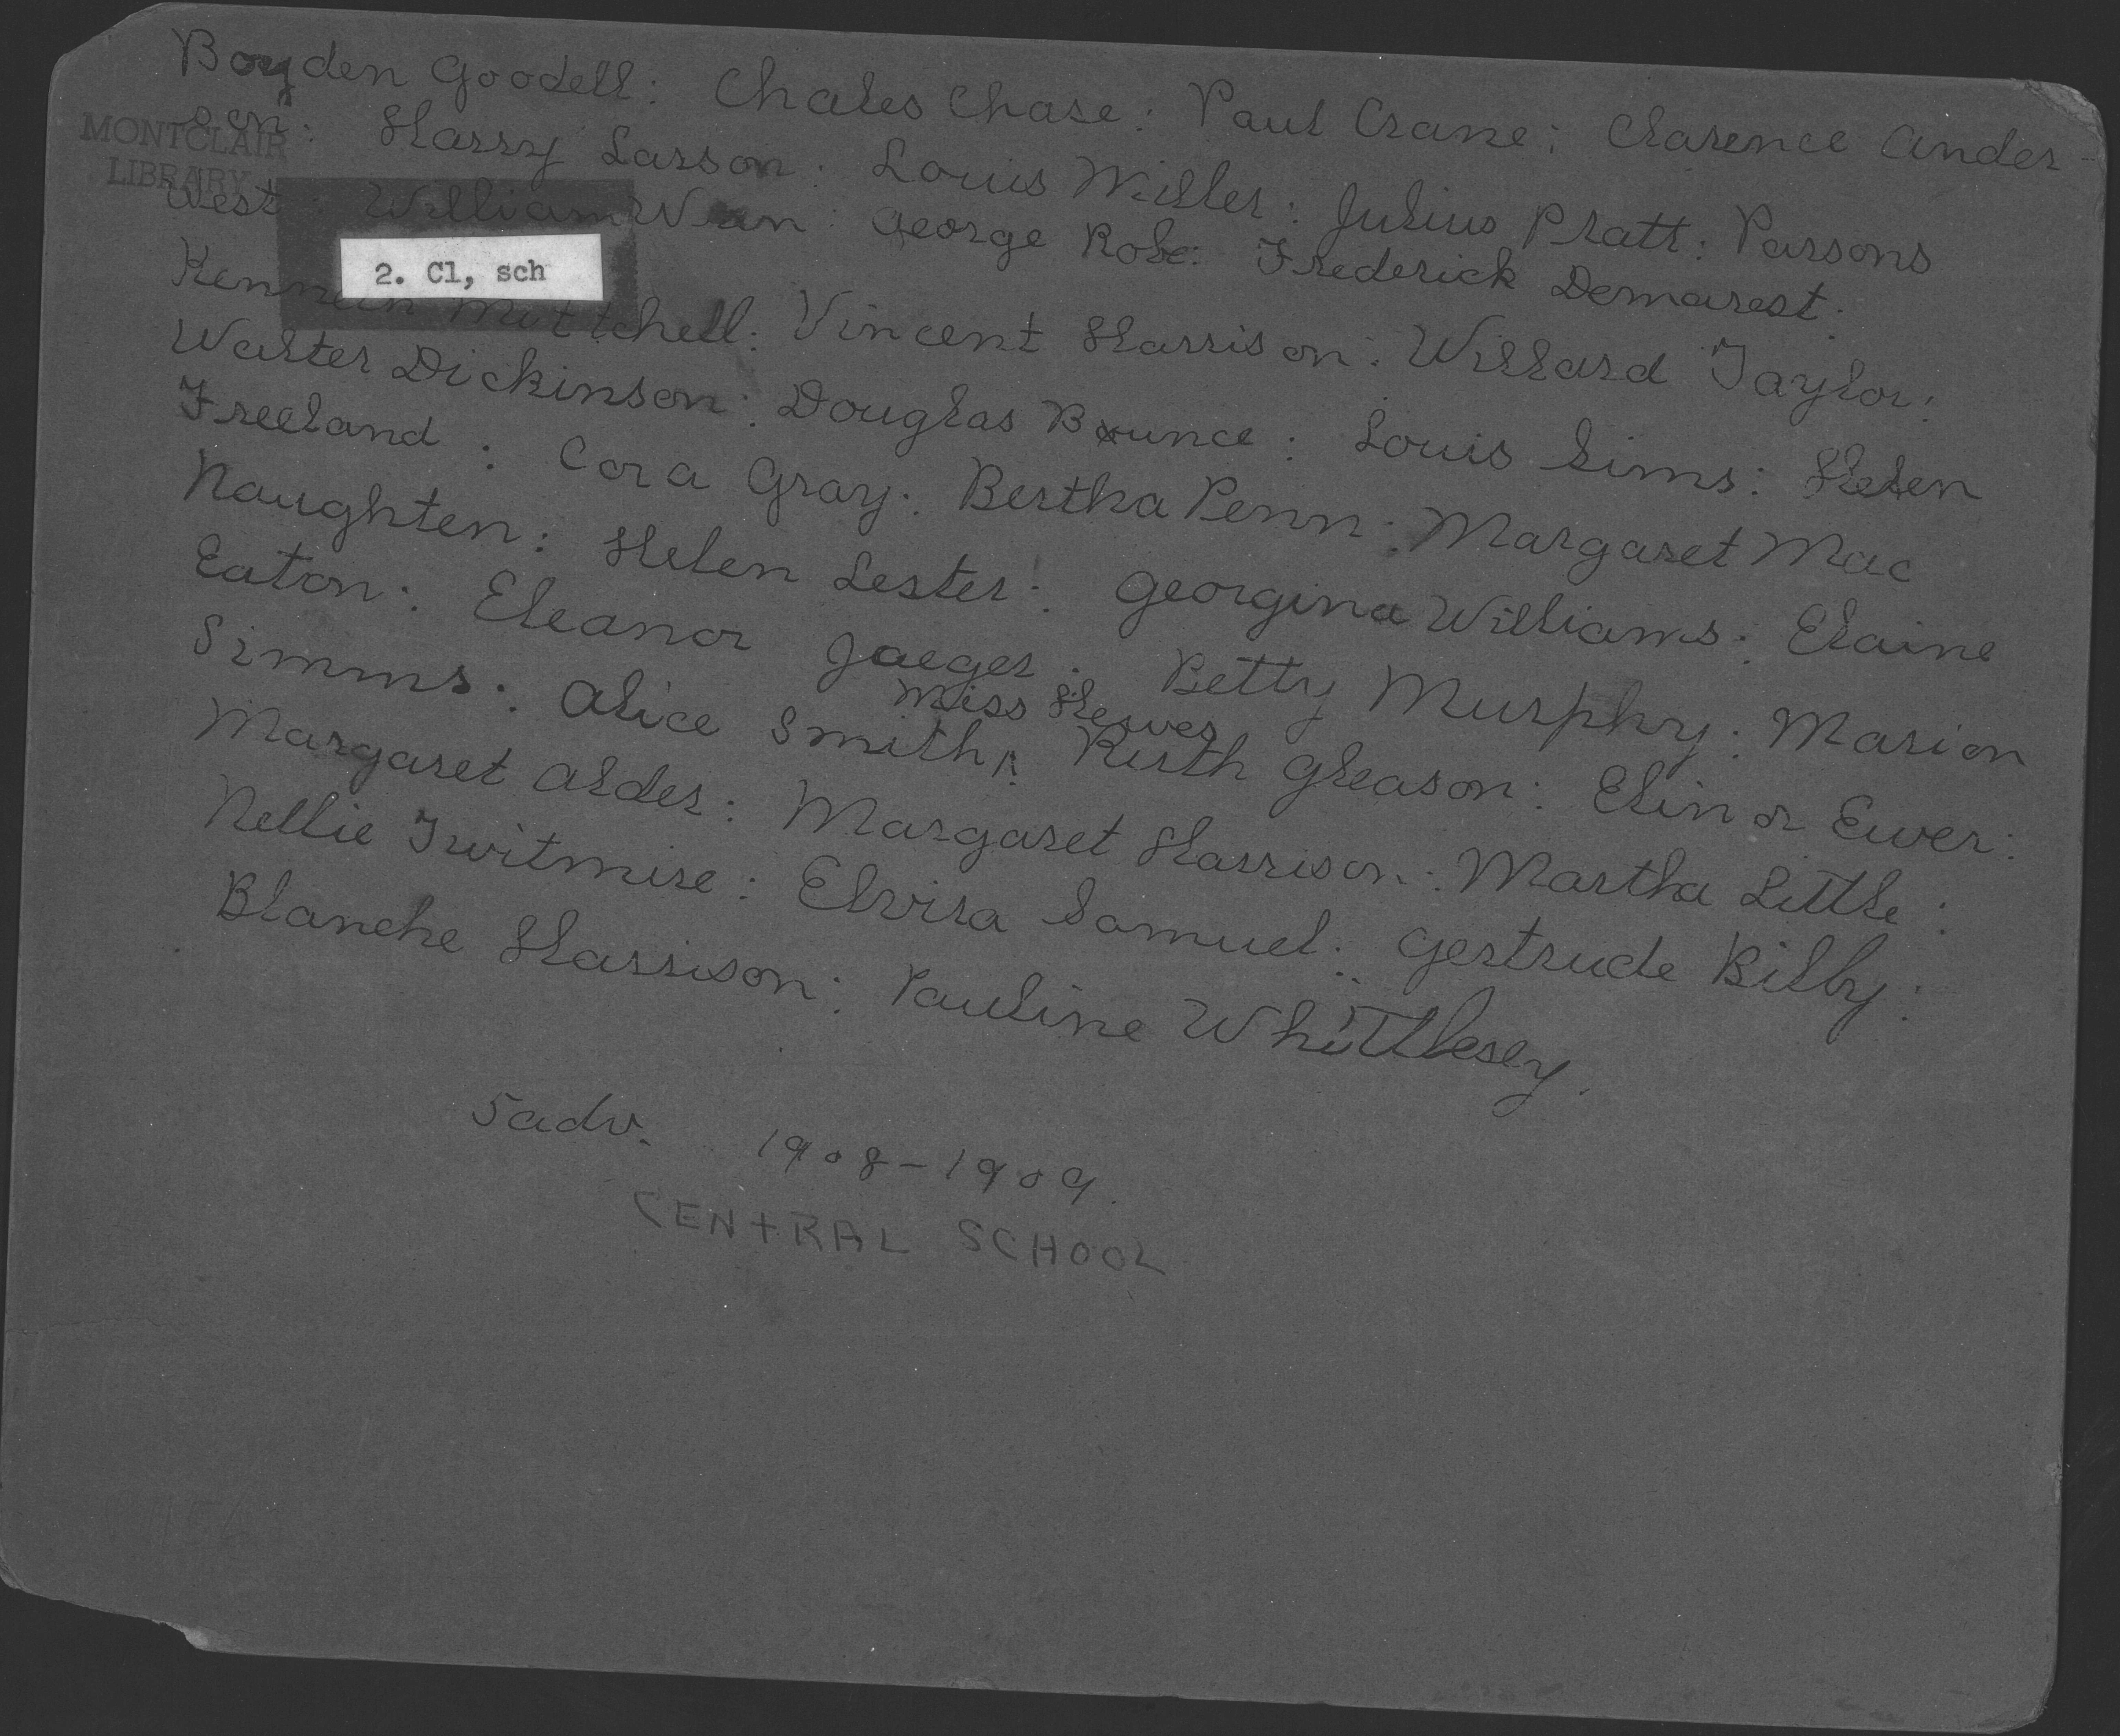 Boyden Goodell: Chales Chase: Paul Crane: Clarence Ander-
sen: Harry Larson: Louis Miller: Julius Pratt: Parsons
MONTCLAIR
LIBRARY
West: William George Robe: Frederick Demarest:
2. Cl, sch
Kenneth Mittchell: Vincent Harrison: Willard Taylor:
Walter Dickinson: Douglas Bounce: Louis Sims: Helen
Freeland: Cora Gray: Bertha Penn: Margaret Mac
Naughten: Helen Lester: Georgina Williams: Elaine
Eaton: Eleanor Jaeger: Betty Murphy: Marion
Miss Hewes
Simms: Alice Smith: Ruth Gleason: Elinor Ewer:
Margaret Alder: Margaret Harrison: Martha Little:
Nellie Twitmire: Elvira Samuel: Gertrude Bilby:
Blanche Harrison: Pauline Whittlesey.
5adv. 1908-1909.
CENTRAL SCHOOL